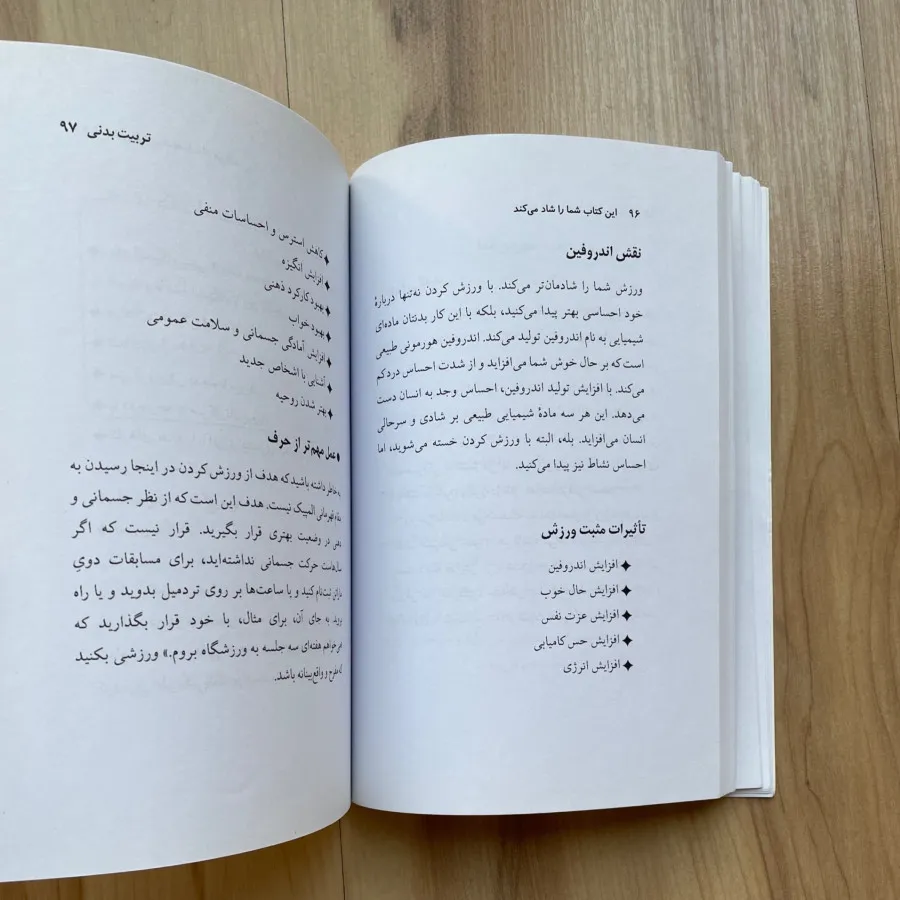 ۹۶ این کتاب شما را شاد می‌کند
نقش اندروفین
ورزش شما را شادمان‌تر می‌کند. با ورزش کردن نه‌تنها دربارهٔ
خود احساسی بهتر پیدا می‌کنید، بلکه با این کار بدنتان ماده‌ای
شیمیایی به نام اندروفین تولید می‌کند. اندروفین هورمونی طبیعی
است که بر حال خوش شما می‌افزاید و از شدت احساس درد کم
می‌کند. با افزایش تولید اندروفین، احساس وجد به انسان دست
می‌دهد. این هر سه مادهٔ شیمیایی طبیعی بر شادی و سرحالی
انسان می‌افزاید. بله، البته با ورزش کردن خسته می‌شوید، اما
احساس نشاط نیز پیدا می‌کنید.
تأثیرات مثبت ورزش
افزایش اندروفین
افزایش حال خوب
افزایش عزت نفس
افزایش حس کامیابی
افزایش انرژی
تربیت بدنی ۹۷
کاهش استرس و احساسات منفی
افزایش انگیزه
بهبود کارکرد ذهنی
بهبود خواب
افزایش آمادگی جسمانی و سلامت عمومی
آشنایی با اشخاص جدید
بهتر شدن روحیه
عمل مهم‌تر از حرف
به خاطر داشته باشید که هدف از ورزش کردن در اینجا رسیدن به
مقام قهرمانی المپیک نیست. هدف این است که از نظر جسمانی و
ذهنی در وضعیت بهتری قرار بگیرید. قرار نیست که اگر
سال‌هاست حرکت جسمانی نداشته‌اید، برای مسابقات دوی
ماراتن ثبت‌نام کنید و یا ساعت‌ها بر روی تردمیل بدوید و یا راه
بروید. به جای آن، برای مثال، با خود قرار بگذارید که
می‌خواهم هفته‌ای سه جلسه به ورزشگاه بروم.» ورزشی بکنید
که مفرح و واقع‌بینانه باشد.